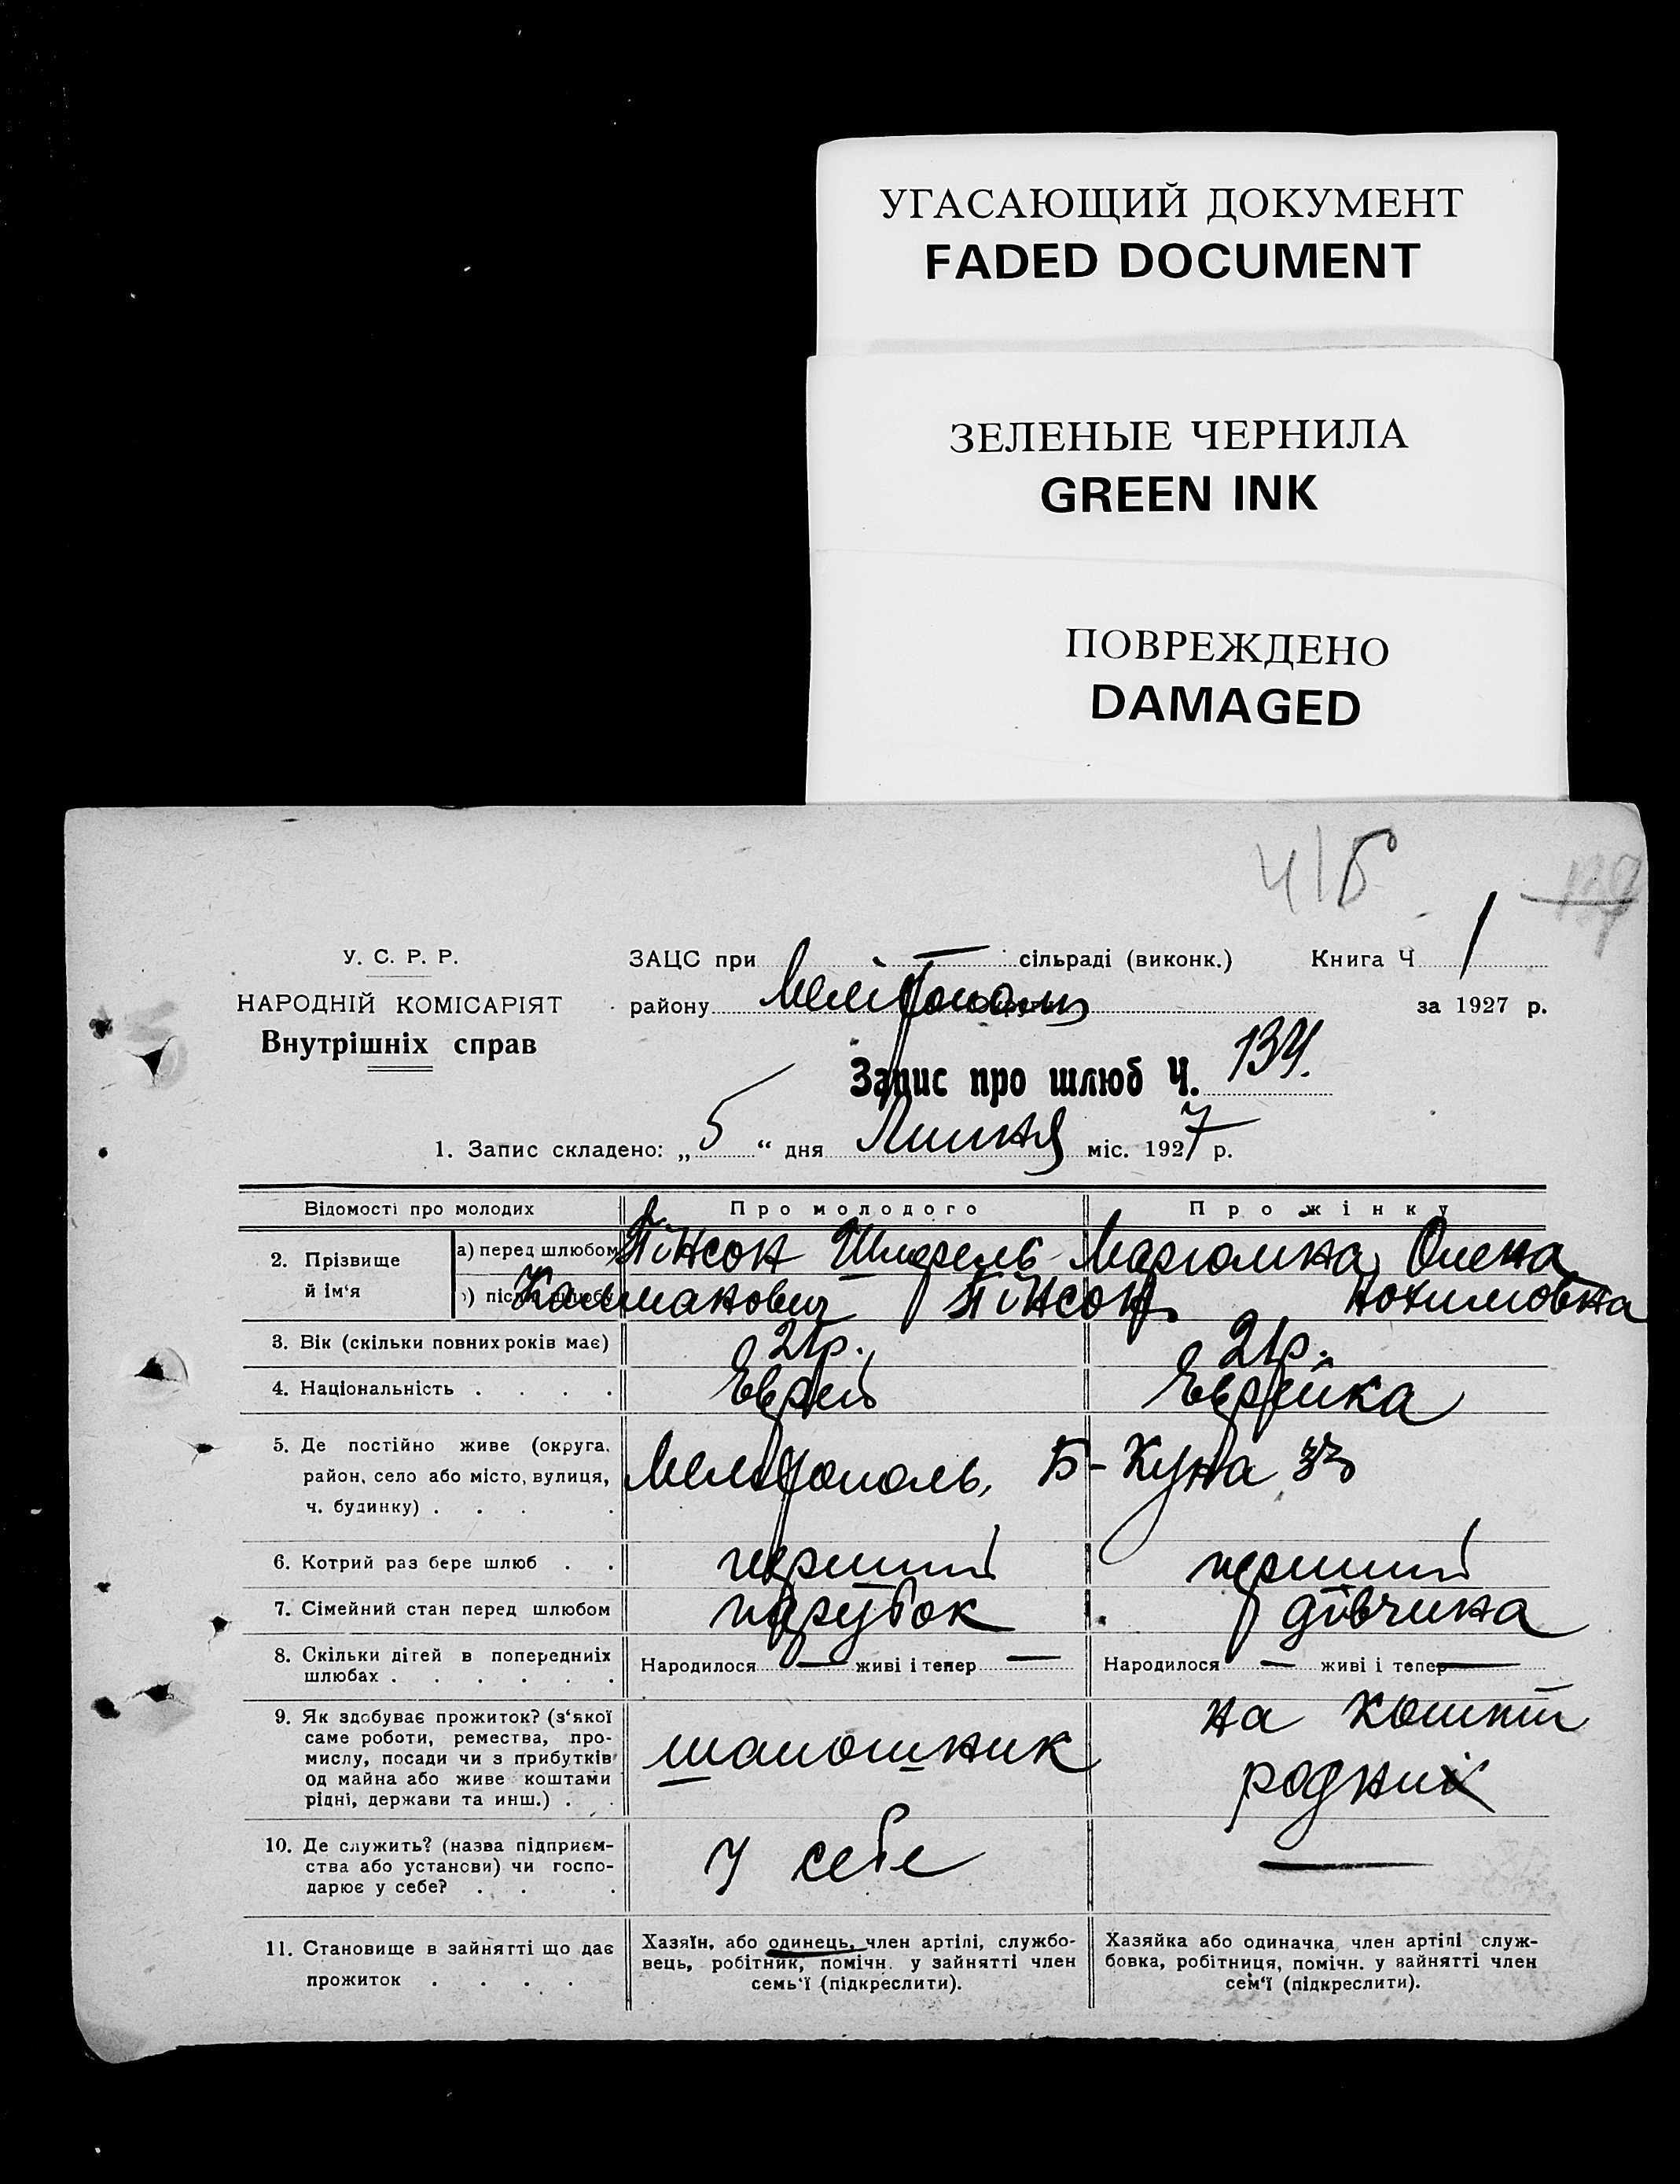 УГАСАЮЩИЙ ДОКУМЕНТ
FADED DOCUMENT
ЗЕЛЕНЫЕ ЧЕРНИЛА
GREEN INK
ПОВРЕЖДЕНО
DAMAGED
У. С. Р. Р.
НАРОДНІЙ КОМІСАРІЯТ
Внутрішніх справ
ЗАЦС при — сільраді (виконк.) Книга Ч 1
району за 1927 р.
Запис про шлюб Ч. 134.
1. Запис складено: „ 5 “ дня Липня міс. 1927 р.
Відомості про молодих Про молодого Про жінку
2. Прізвище й ім‘я
а) перед шлюбом Пінсон Олена
Пінсон
3. Вік (скільки повних років має) 21р. 21р.
4. Національність . . . . Еврей Еврейка
5. Де постійно живе (округа, Мелітополь, Б-Куна 33
район, село або місто, вулиця,
ч. будинку) . . . .
6. Котрий раз бере шлюб . . перший перший
7. Сімейний стан перед шлюбом парубок дівчина
8. Скільки дітей в попередниіх
шлюбах . . . . . .
Народилося — живі і тепер —
Народилося — живі і тепер —
9. Як здобуває прожиток? (з‘якої
саме роботи, ремества, про-
мислу, посади чи з прибутків
од майна або живе коштами
рідні, держави та инш.) . .
шапошник
на кошти
родни
10. Де служить? (назва підприєм-
ства або установи) чи госпо-
дарює у себе? . . .
у себе
—
11. Становище в зайнятті що дає
прожиток . . . .
Хазяїн, або одинець, член артілі, службо-
вець, робітник, помічн. у зайнятті член
семь‘ї (підкреслити).
Хазяйка або одиначка член артілі служ-
бовка, робітниця, помічн. у зайнятті член
сем‘ї (підкреслити).